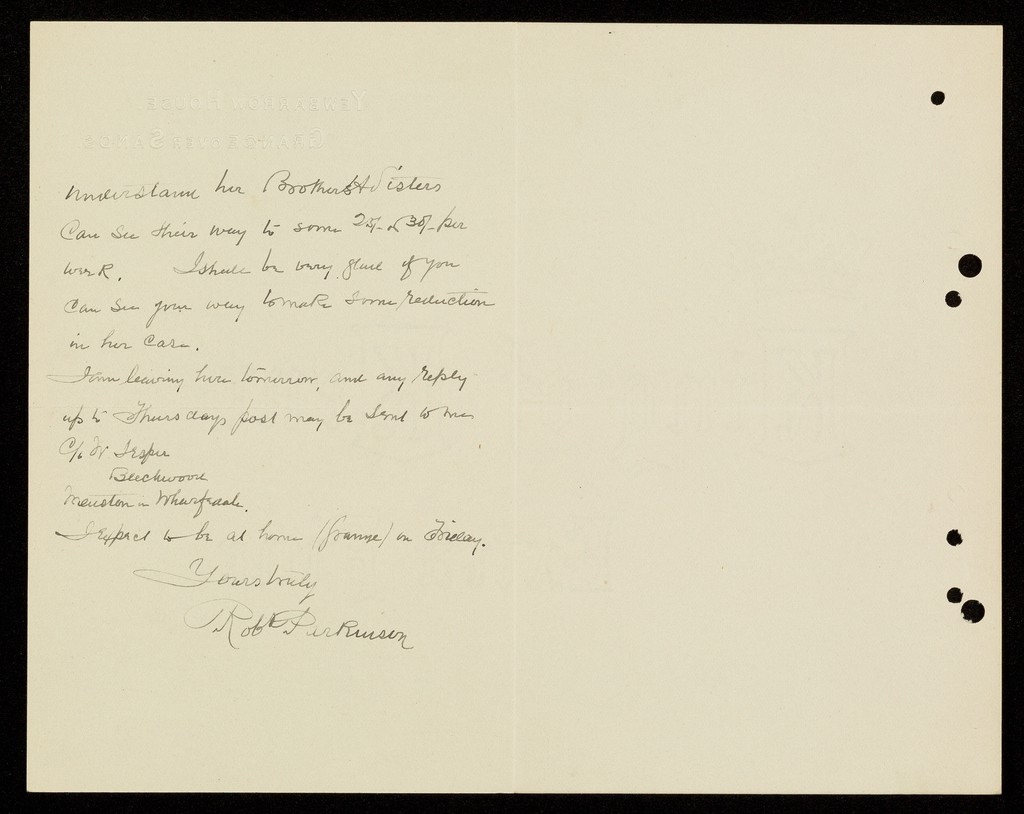 understand her Brothers & Sisters
Can See their way to some 25/- or 30/- per
week. I shall be very glad if you
can see your way to make some reduction
in her case.
I am leaving here tomorrow, and any reply
up to Thursdays post may be sent to me
C/o W
Beechwood
Menston in Wharfedale.
I expect to be at home (Grange) on Friday.
Yours truly
Robt Perkinson